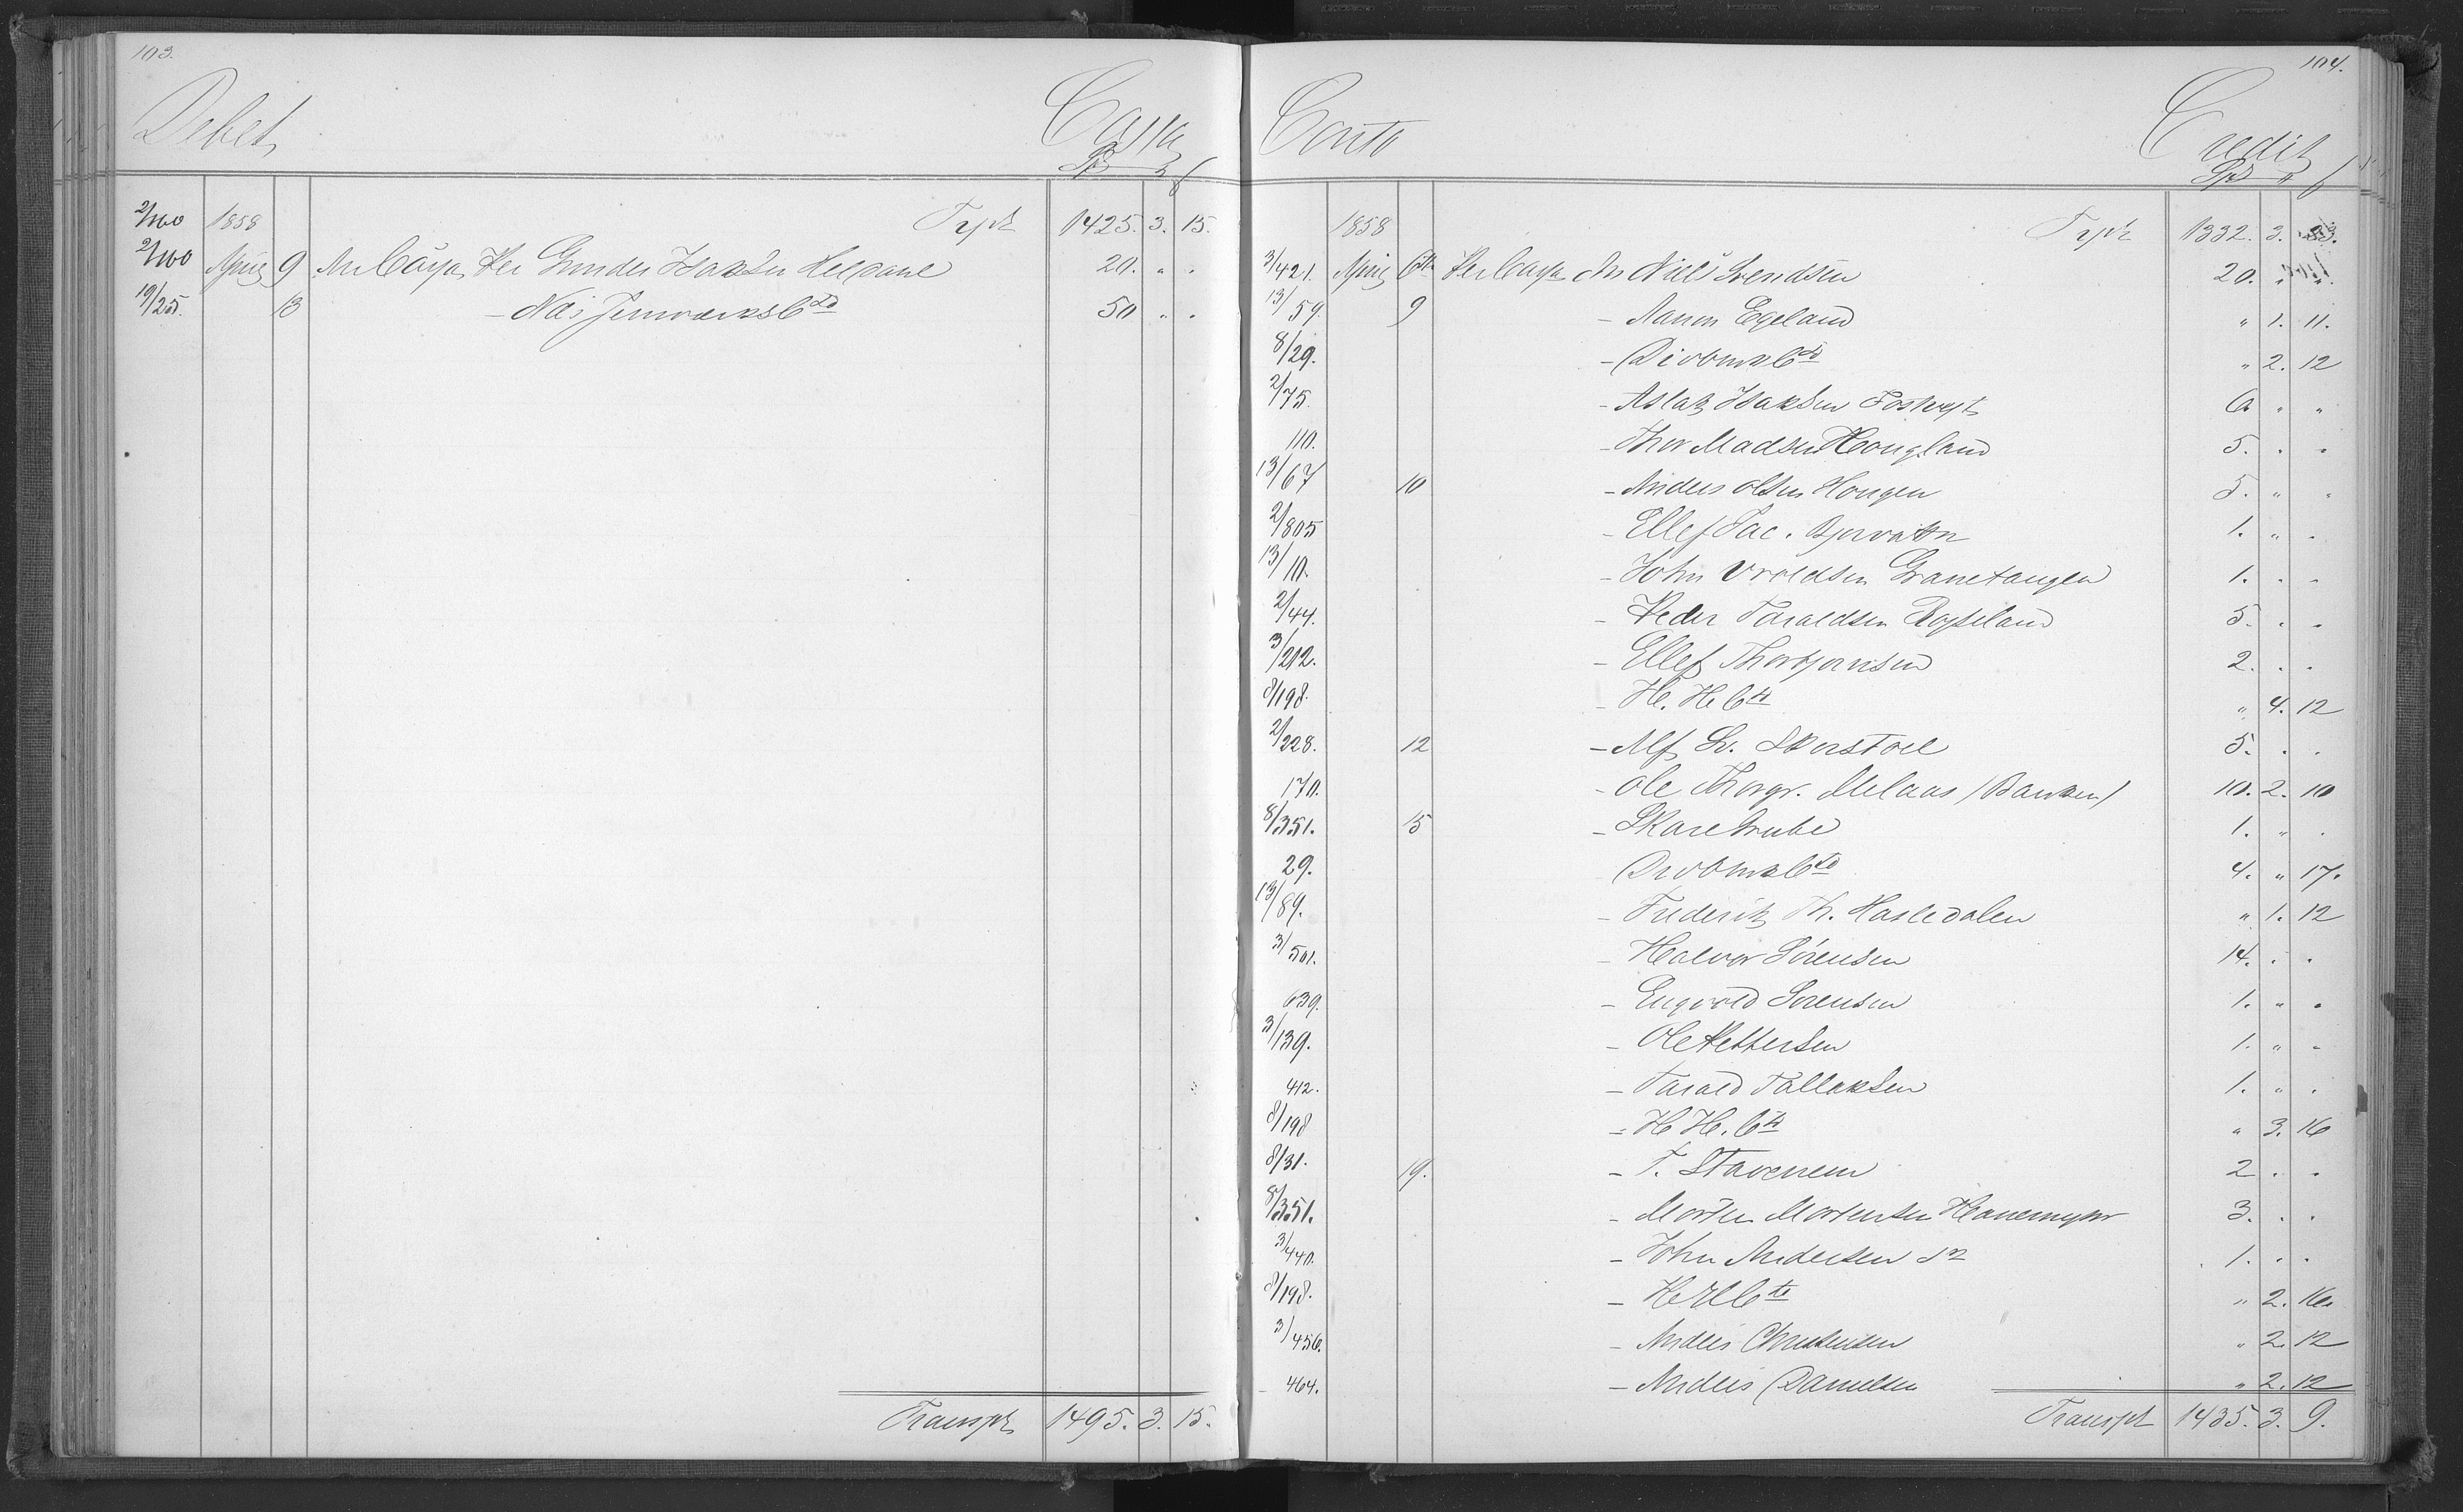 103.
Debet Cassa
Spd
2/160 1858 Trspt 1425. 3. 15.
2/160 April 9 An Cassa Per Gunder Isaksen Helsane 20. " .
19/25. 13 - Næs Jernværks Cto 50 " .
Transpt 1495. 3. 15.
104.
Conto Credit
Spd
1858 Trspt 1332. 3.
3/421. April 6te Per Cassa An Niels Svendsen 20. " "
13/59. 9 - Aanon Egeland " 1. 11.
8/29. - Divbmk Cto " 2. 12
2/75. - Aslak Isaksen Fosheyt 6 " "
110. - Thor Madsen Hougland 5. . .
13/67 10 - Anders Olsen Hougen 5. " "
2/805 - Ellef Jac. Bjorvatn 1. " .
13/10. - John Vroldsen Granetangen 1. . .
2/44. - Peder Taraldsen Bosseland 5. . .
3/212. - Ellef Thorbjørnsen 2. . .
8/198. - H. H. Cto " 4. 12
2/228. 12 - Alf S. Skerstøel 5. . .
170. - Ole Thorgr. Melaas / Banken / 10. 2. 10
8/351. 15 - Skare Grube 1. " .
29. Divbmk Cto 4. " 17.
13/89. - Frederik Th. Hasledalen " 1. 12
3/501. - Halvor Sørensen 14. . .
639. - Engvold Sørensen 1. " .
3/139. - Ole Pettersen 1. " .
412. - Tarald Tallaksen 1. " .
8/198 - H H. Cto " 3. 16
8/31. 19. - T. Stavenem 2 . .
8/351. - Morten Mortensen Hanemyr 3. . .
3/440. - John Andersen Sn 1. . .
8/198. - H H Cto " 2. 16.
3/456. - Anders Christensen " 2. 12
464. - Anders Danielsen " 2. 12
Transpt 1435. 3. 9.